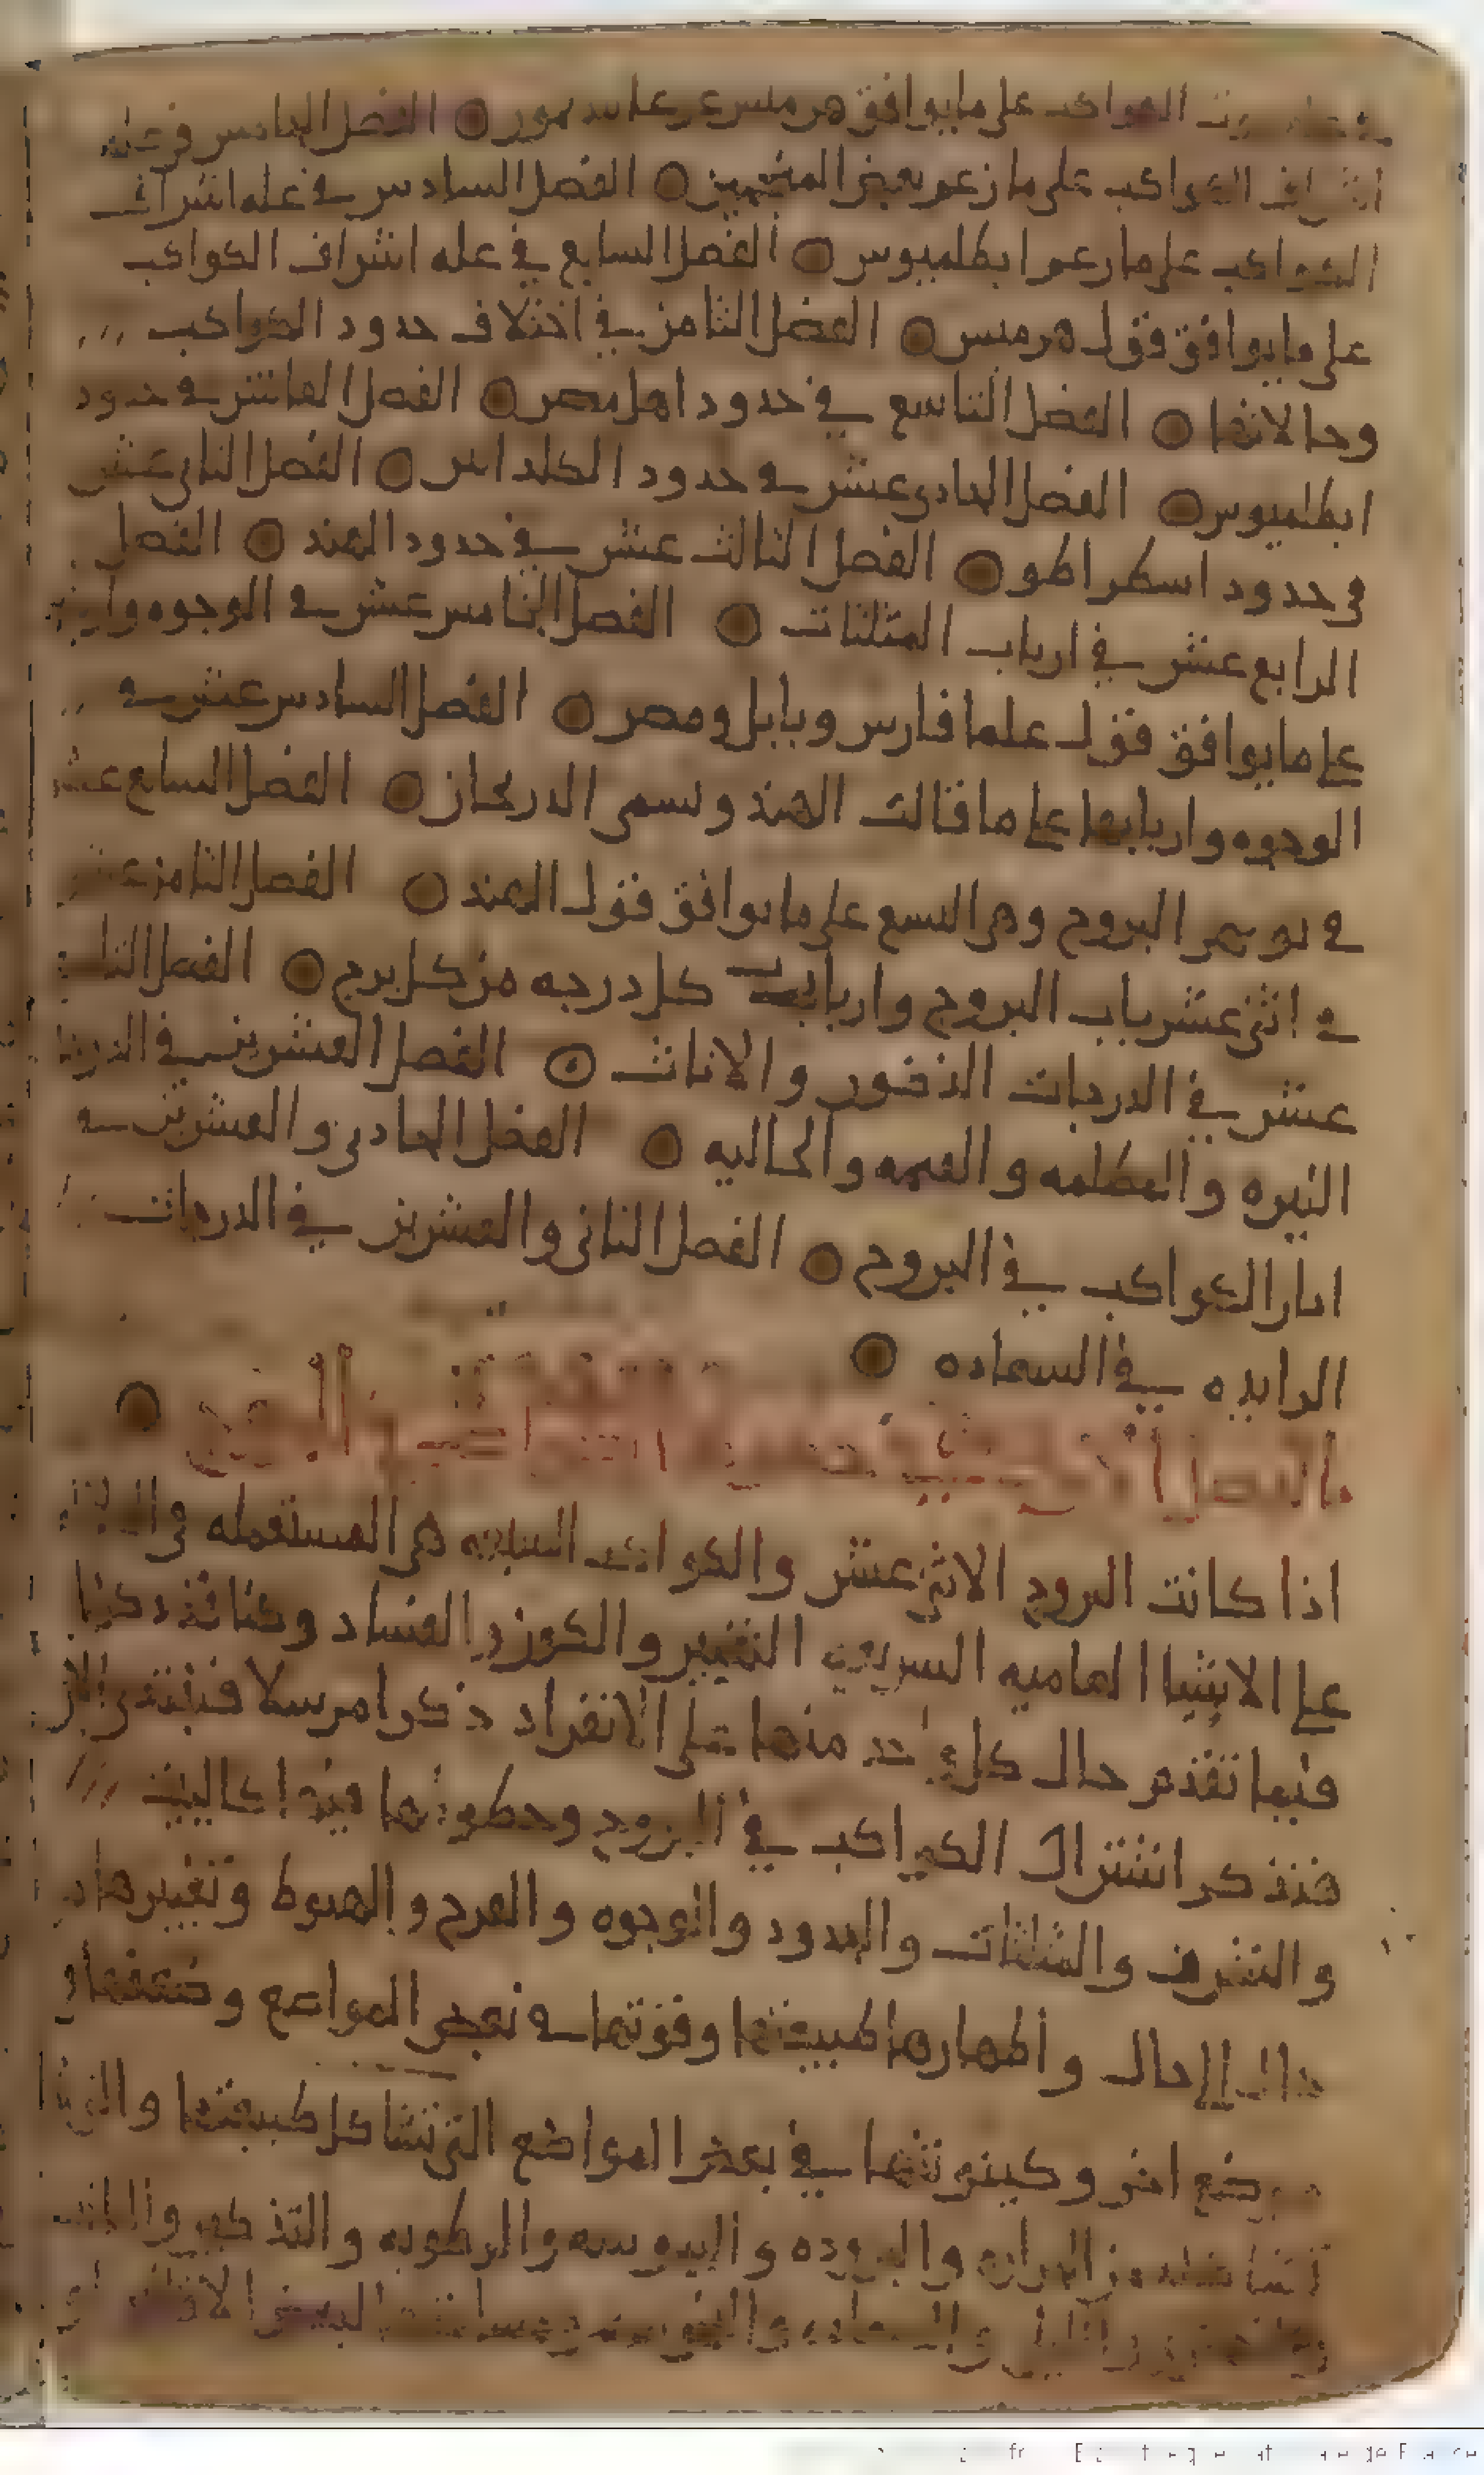 بيوت الكواكب على ما يوافق هرمس عن عاىىدىمور ○ الفصل الخامس في علة
اشراف الكواكب على ما زعم بعض المنجمين ○ الفصل السادس في عله اشراف
الكواكب على ما زعم ابطلميوس ○ الفصل السابع في عله اشراف الكواكب
على ما يوافق قول هرمس ○ الفصل الثامن في اختلاف حدود الكواكب
وحالاتها ○ الفصل التاسع في حدود اهل مصر ○ الفصل العاشر في حدود
ابطلميوس ○ الفصل الحادى عشر في حدود الكلدانىن ○ الفصل الثانى عشر
في حدود اسطراطو ○ الفصل الثالث عشر في حدود الهند ○ الفصل
الرابع عشر في ارباب المثلثات ○ الفصل الخامس عشر في الوجوه
على ما يوافق قول علما فارس وبابل ومصر ○ الفصل السادس عشر في
الوجوه واربابها على ما قالت الهند وىسمى الدرىجان ○ الفصل السابع عشر
في نوبهر البروج وهي التسع على ما يوافق قول الهند ○ الفصل الثامن عشر
في اثنى عشريات البروج وارباب كل درجه من كل برج ○ الفصل التاسع
عشر في الدرجات الذكور والاناث ○ الفصل العشرين في الدرجات
النيره والمظلمه والقىمه والخاليه ○ الفصل الحادى والعشرين في
ابار الكواكب في البروج ○ الفصل الثانى والعشرين في الدرجات
الزايده في السعاده ○
الفصل الاول في بيوت الكواكب ○
اذا كانت البروج الاثنى عشر والكواكب السبعه هي المستعمله في الدلاله
على الاشيا العاميه السريعه التغيير والكون والفساد وكنا قد ذكرنا
فيما تقدم حال كل واحد منها على الانفراد ذكرا مرسلا فلنبتدى الان
فنذكر اشتراك الكواكب في البروج وحظوظها فيها كالبيت
والشرف والمثلثات والحدود والوجوه والفرح والهبوط وتغييرها من
حال الى حال واظهارها طبيعتها وقوتها في بعض المواضع وضعفها في
موضع اخر وكينونتها في بعض المواضع التى تشاكل طبيعتها
الحراره والبروده واليبوسه والرطوبه والتذكير والتانيث